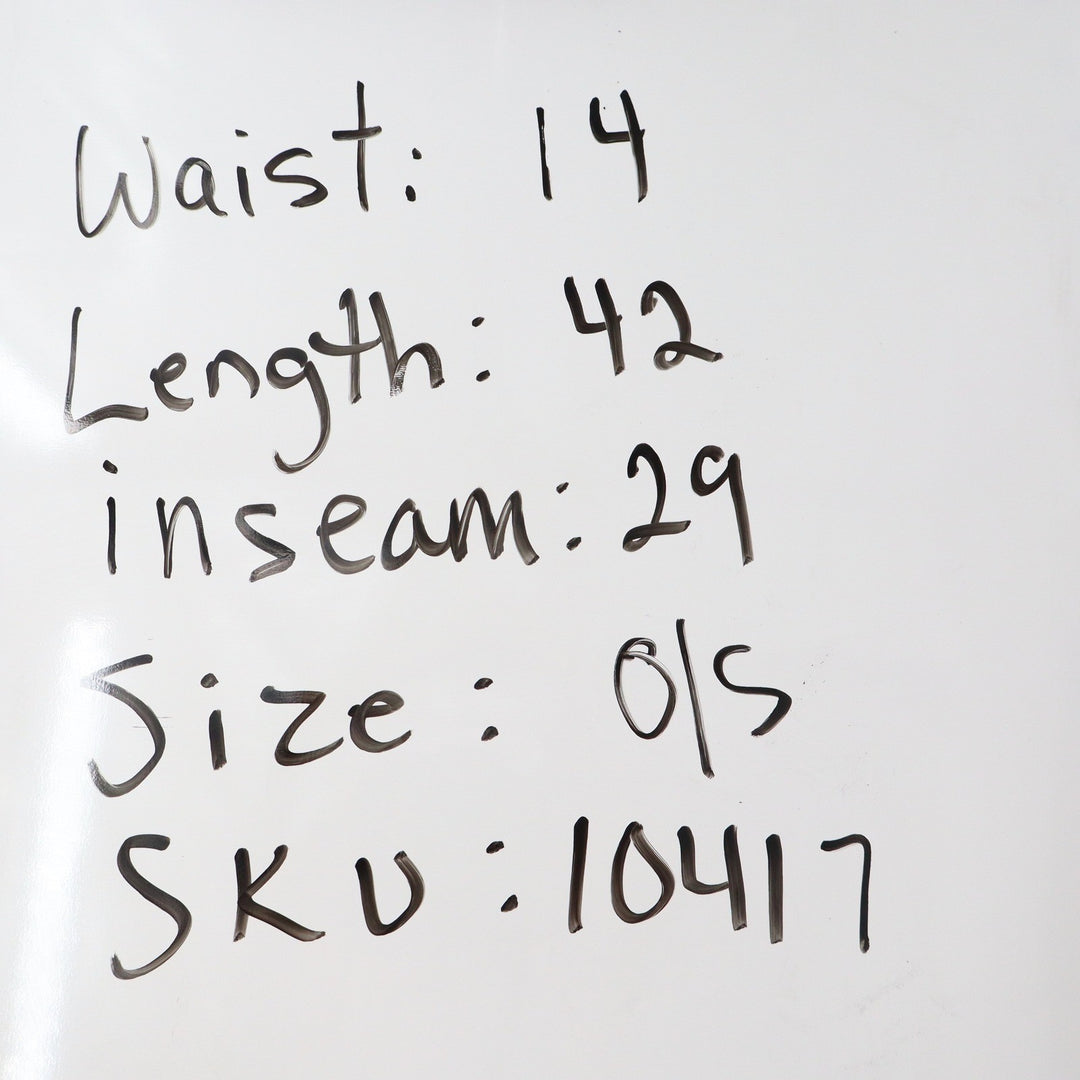 Waist: 14
Length: 42
inseam: 29
Size: O/S
SKU: 10417